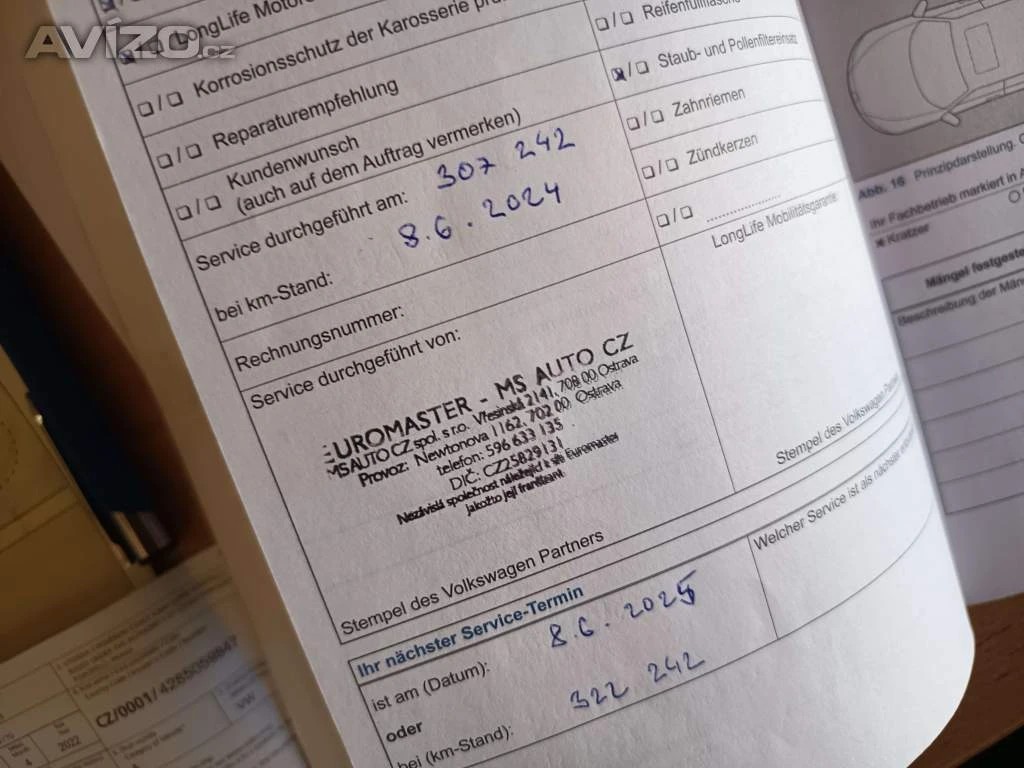 Avízo.cz
LongLife Motor
Korrosionsschutz der Karosserie
Reparaturempfehlung
Kundenwunsch
(auch auf dem Auftrag vermerken)
Service durchgeführt am: 307 242
bei km-Stand: 8.6.2024
Rechnungsnummer:
Service durchgeführt von:
EUROMASTER - MS AUTO CZ
MS AUTO CZ spol. s r.o. Vřesinská 2141, 708 00 Ostrava
Provoz: Newtonova 1162, 702 00 Ostrava
telefon: 596 633 135
DIC: CZ25829131
Nezávislá společnost náležející k síti Euromaster
jakožto její franšízant
Stempel des Volkswagen Partners
Staub- und Pollenfiltereinsatz
Zahnriemen
Zündkerzen
LongLife Mobilitätsgarantie
Stempel des Volkswagen
Ihr nächster Service-Termin
ist am (Datum): 8.6.2025
oder
bei (km-Stand): 322 242
Welcher Service ist als nächster
Abb. 16 Prinzipdarstellung.
Ihr Fachbetrieb markiert in
Kratzer
Mängel festgeste
Beschreibung der Män
CZ/0001/4265059847
4
2022